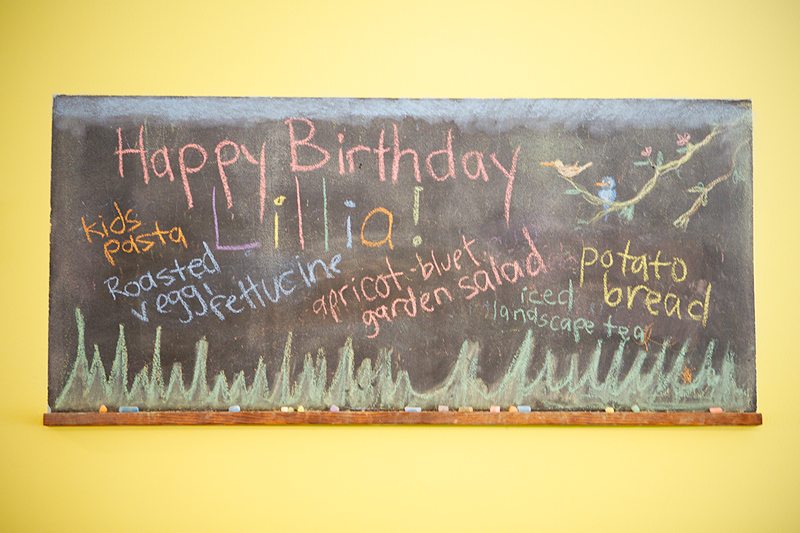 Happy Birthday
Lillia!
kids
pasta
Roasted
veggi fettucine
apricot-bluet
garden salad
iced
landscape tea
potato
bread